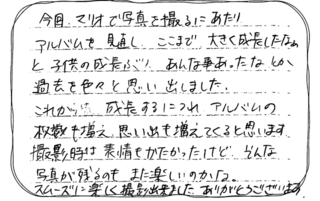 今回、マリオで写真を撮るにあたり
アルバムを見直し ここまで 大きく成長したなぁ
と 子供の成長ぶり、あんな事あったなとか
過去を色々と思い出しました。
これから 成長するにつれ アルバムの
枚数も増え 思い出も増えてくると思います
撮影時は表情もかたかったけど そんな
写真が残るのも また楽しいのかな。
スムーズに楽しく撮影出来ました ありがとうございます。